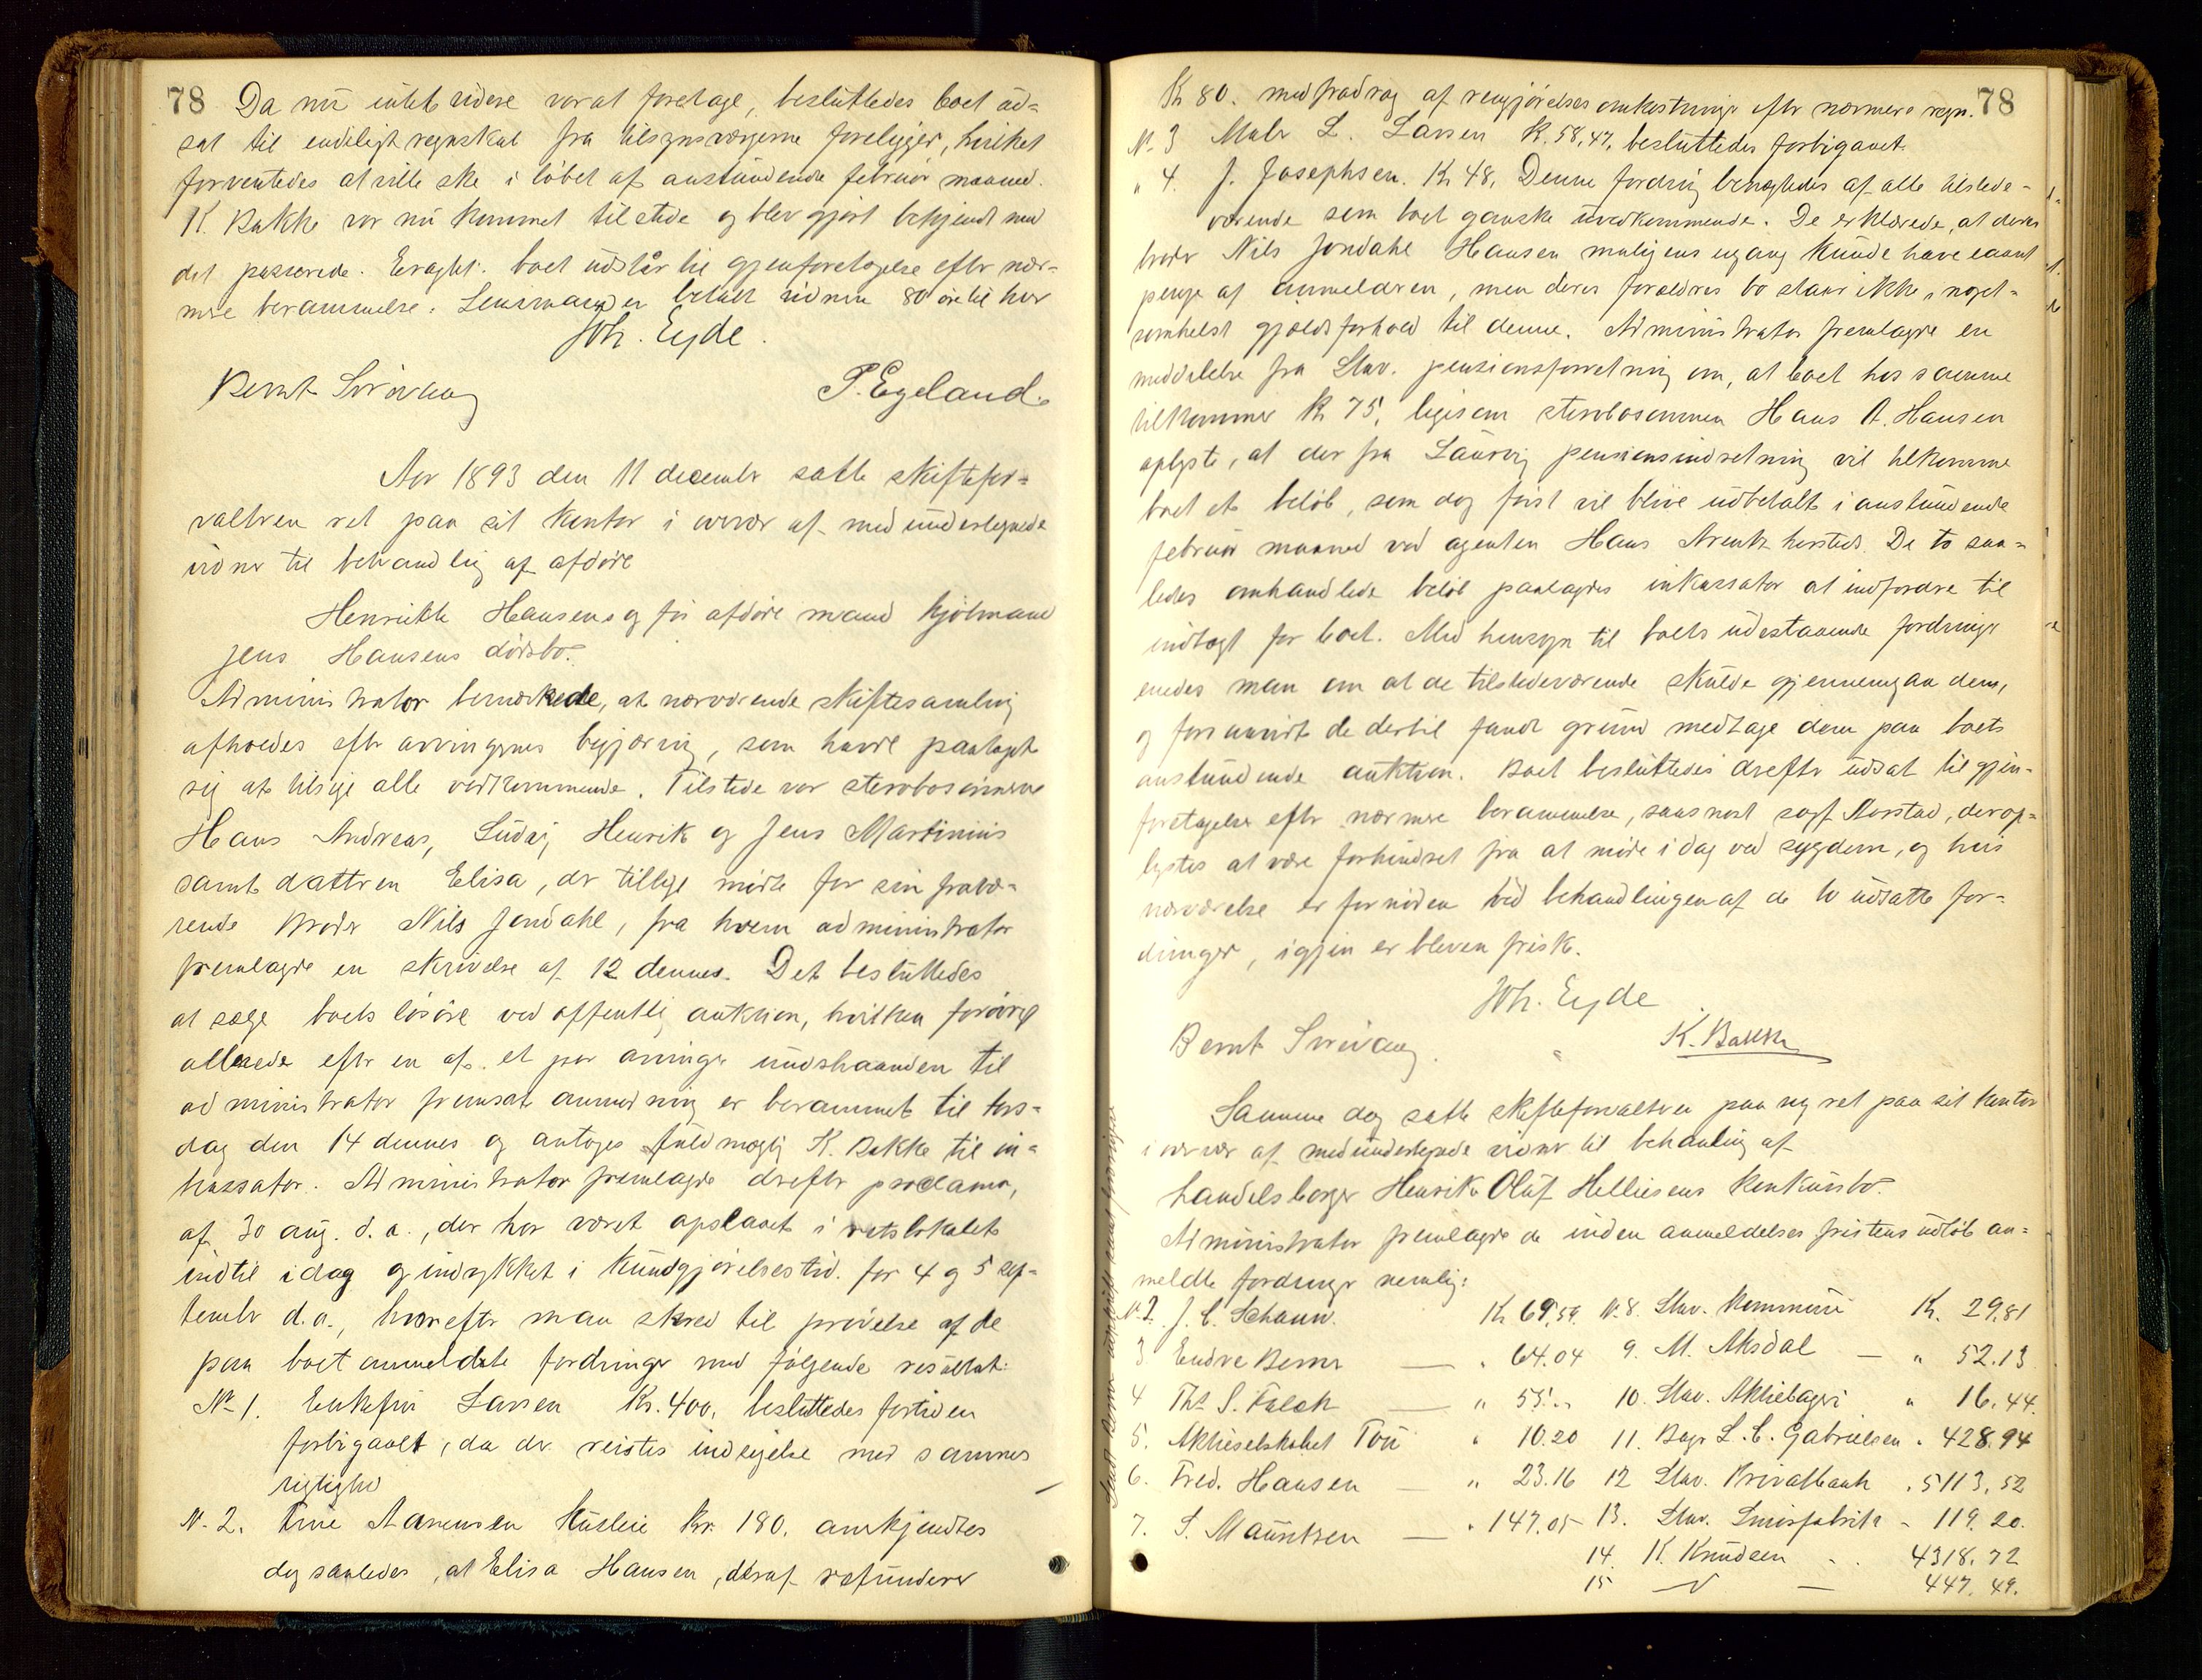 78 Da nu intet videre var at foretage, besluttedes boet ud=
sat til endeligt regnskab fra tilsynsværgerne foreligger, hvilket
forventedes at ville ske i løbet af anstundende februar maaned.
K. Bakke var nu kommet tilstede og blev gjort bekjendt med
det passerede. Eragtet: boet udstår til gjenforetagelse efter nær=
mere berammelse. Lensmanden betalt vidnen 80 øre til hver
Joh. Eyde.
Bernt Sviovaag P. Egeland.
Aar 1893 den 11 december satte skiftefor=
valteren ret paa sit kontor i overvær af medundertegnede
vidner til behandling af afdøde
Henrikke Hansens og før afdøde mand kjølmand
Jens Hansens dødsbo.
Administrator bemærkede, at nærværende skiftesamling
afholdes efter arvingernes begjæring, som havde paataget
sig at tilsige alle vedkommende. Tilstede var stervbosønnerne
Hans Andreas, Ludvig Henrik og Jens Martinius
samt datteren Elisa, der tillige mødte for sin fravæ=
rende broder Nils Jondahl, fra hvem administrator
fremlagde en skrivelse af 12 dennes. Det besluttedes
at sælge boets løsøre ved offentlig auktion, hvilken forøvrigt
allerede efter en af et par arvinger undshaanden til
administrator fremsat anmodning er berammet til tors=
dag den 14 dennes og antoges fuldmægtig K. Bakke til in=
kassator. Administrator fremlagde derefter proclama,
af 30 aug. d.a., der har været opslaaet i retslokalet
indtil idag og indrykket i Kundgjørelsestid. for 4 og 5 sep=
tember d.a., hvorefter man skred til prøvelse af de
paa boet anmeldte fordringer med følgende resultat:
No 1. Enkefru Larsen Kr. 400, besluttedes fortiden
forbigaaet, da der reistes indsigelse mod sammes
rigtighed
N. 2. Trine Aanensen Husleie Kr. 180. anerkjendtes
dog saaledes, at Elisa Hansen, deraf refunderer
Kr 80. med fradrag af rengjørelses omkostninger efter nærmere regn. 78
No 3 Maler L. Larsen K. 58,47, besluttedes forbigaaet.
" 4. J. Josephsen. Kr 48, Denne fordring benægtedes af alle tilstede=
værende som boet ganske uvedkommende. De erklærede, at deres
broder Nils Jondahl Hansen muligens engang kunde have laant
penge af anmelderen, men deres forældres bo staar ikke i noget=
somhelst gjældsforhold til denne. Administrator fremlagde en
meddelelse fra Stav. pensionsforretning om, at boet hos samme
tilkommer Kr 75, ligesom stervbosønnen Hans A. Hansen
oplyste, at der fra Laurvig pensionsindretning vil tilkomme
boet et beløb, som dog først vil blive udbetalt i anstundende
februar maaned ved agenten Hans Arentz hersteds. De to saa=
ledes omhandlede beløb paalagdes inkassator at indfordre til
indtægt for boet. Med hensyn til boets udestaaende fordringer
enedes man om at de tilstedeværende skulde gjennemgaa dem,
og forsaavidt de dertil fandt grund medtage dem paa boets
anstundende auktion. Boet besluttedes derefter udsat til gjen=
foretagelse efter nærmere berammelse, saasnart sagf. Aarstad, der op=
lystes at være forhindret fra at møde i dag ved sygdom, og hvis
nærværelse er fornøden ved behandlingen af de to udsatte for=
dringer, igjen er bleven frisk.
Joh. Eyde
Bernt Sviovaag. K. Bakke
Samme dag satte skifteforvalteren paa ny ret paa sit kontor
i overvær af medundertegnede vidner til behandling af
handelsborger Henrik Oluf Helliesens konkursbo.
Administrator fremlagde de inden anmeldelses fristens udløb an=
meldte fordringer nemlig:
N. 2. J. C. Schauw. Kr 69,59. N. 8. Stav. kommune Kr. 29,81
3 Endre Berner — " 64.04 9. M. Aksdal — " 52.13
4 Ths S. Falck — " 55.. 10. Stav. Aktiebageri " 16.44.
5. Aktieselskabet Tou " 10.20 11. Bager L. C. Gabrielsen " 428.94
6. Fred. Hansen — " 23.16 12 Stav. Privatbank " 5113.52
7. S. Mauritzen — " 147.05 13. Stav. Snusfabrik - 119.20.
14. K. Knudsen - . 4318.72
15 — 447.49.